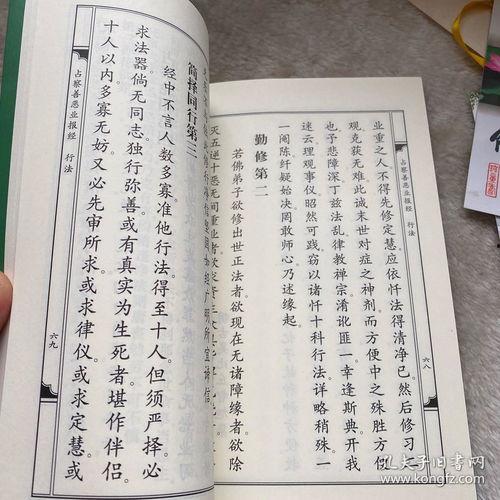 占察善恶业报经 行法
六八
业重之人。不得先修定慧。应依忏法得清净已。然后修习二
观。克获无难。此诚末世对症之神剂。而方便中之殊胜方便
也。予悲障深。丁兹法乱。律教禅宗。淆讹匪一。幸逢斯典。开我
迷云。理观事仪。昭然可践。窃以诸忏十科行法。详略稍殊。一
一阅陈。纤疑始决。罔敢师心。乃述缘起。
勤修第二
若佛弟子。欲修出世正法者。欲现在无诸障缘者。欲除
灭五逆十恶无间重业者。欲
简择同行第三
经中不言人数多寡。准他行法。得至十人。但须严择。必
求法器。倘无同志。独行弥善。或有真实为生死者。堪作伴侣。
十人以内。多寡无妨。又必先审所求。或求律仪。或求定慧。或
占察善恶业报经 行法
六九
孔夫子旧书网